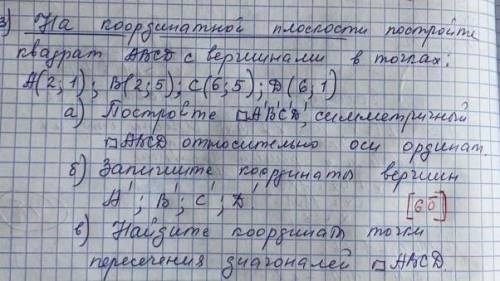 3) На координатной плоскости постройте
квадрат ABCD с вершинами в точках:
A(2; 1); B(2; 5); C(6; 5); D(6; 1)
а) Постройте □A'B'C'D', симметричный
□ABCD относительно оси ординат.
б) Запишите координаты вершин
A'; B'; C'; D'. [6б]
в) Найдите координат точки
пересечения диагоналей □ABCD.